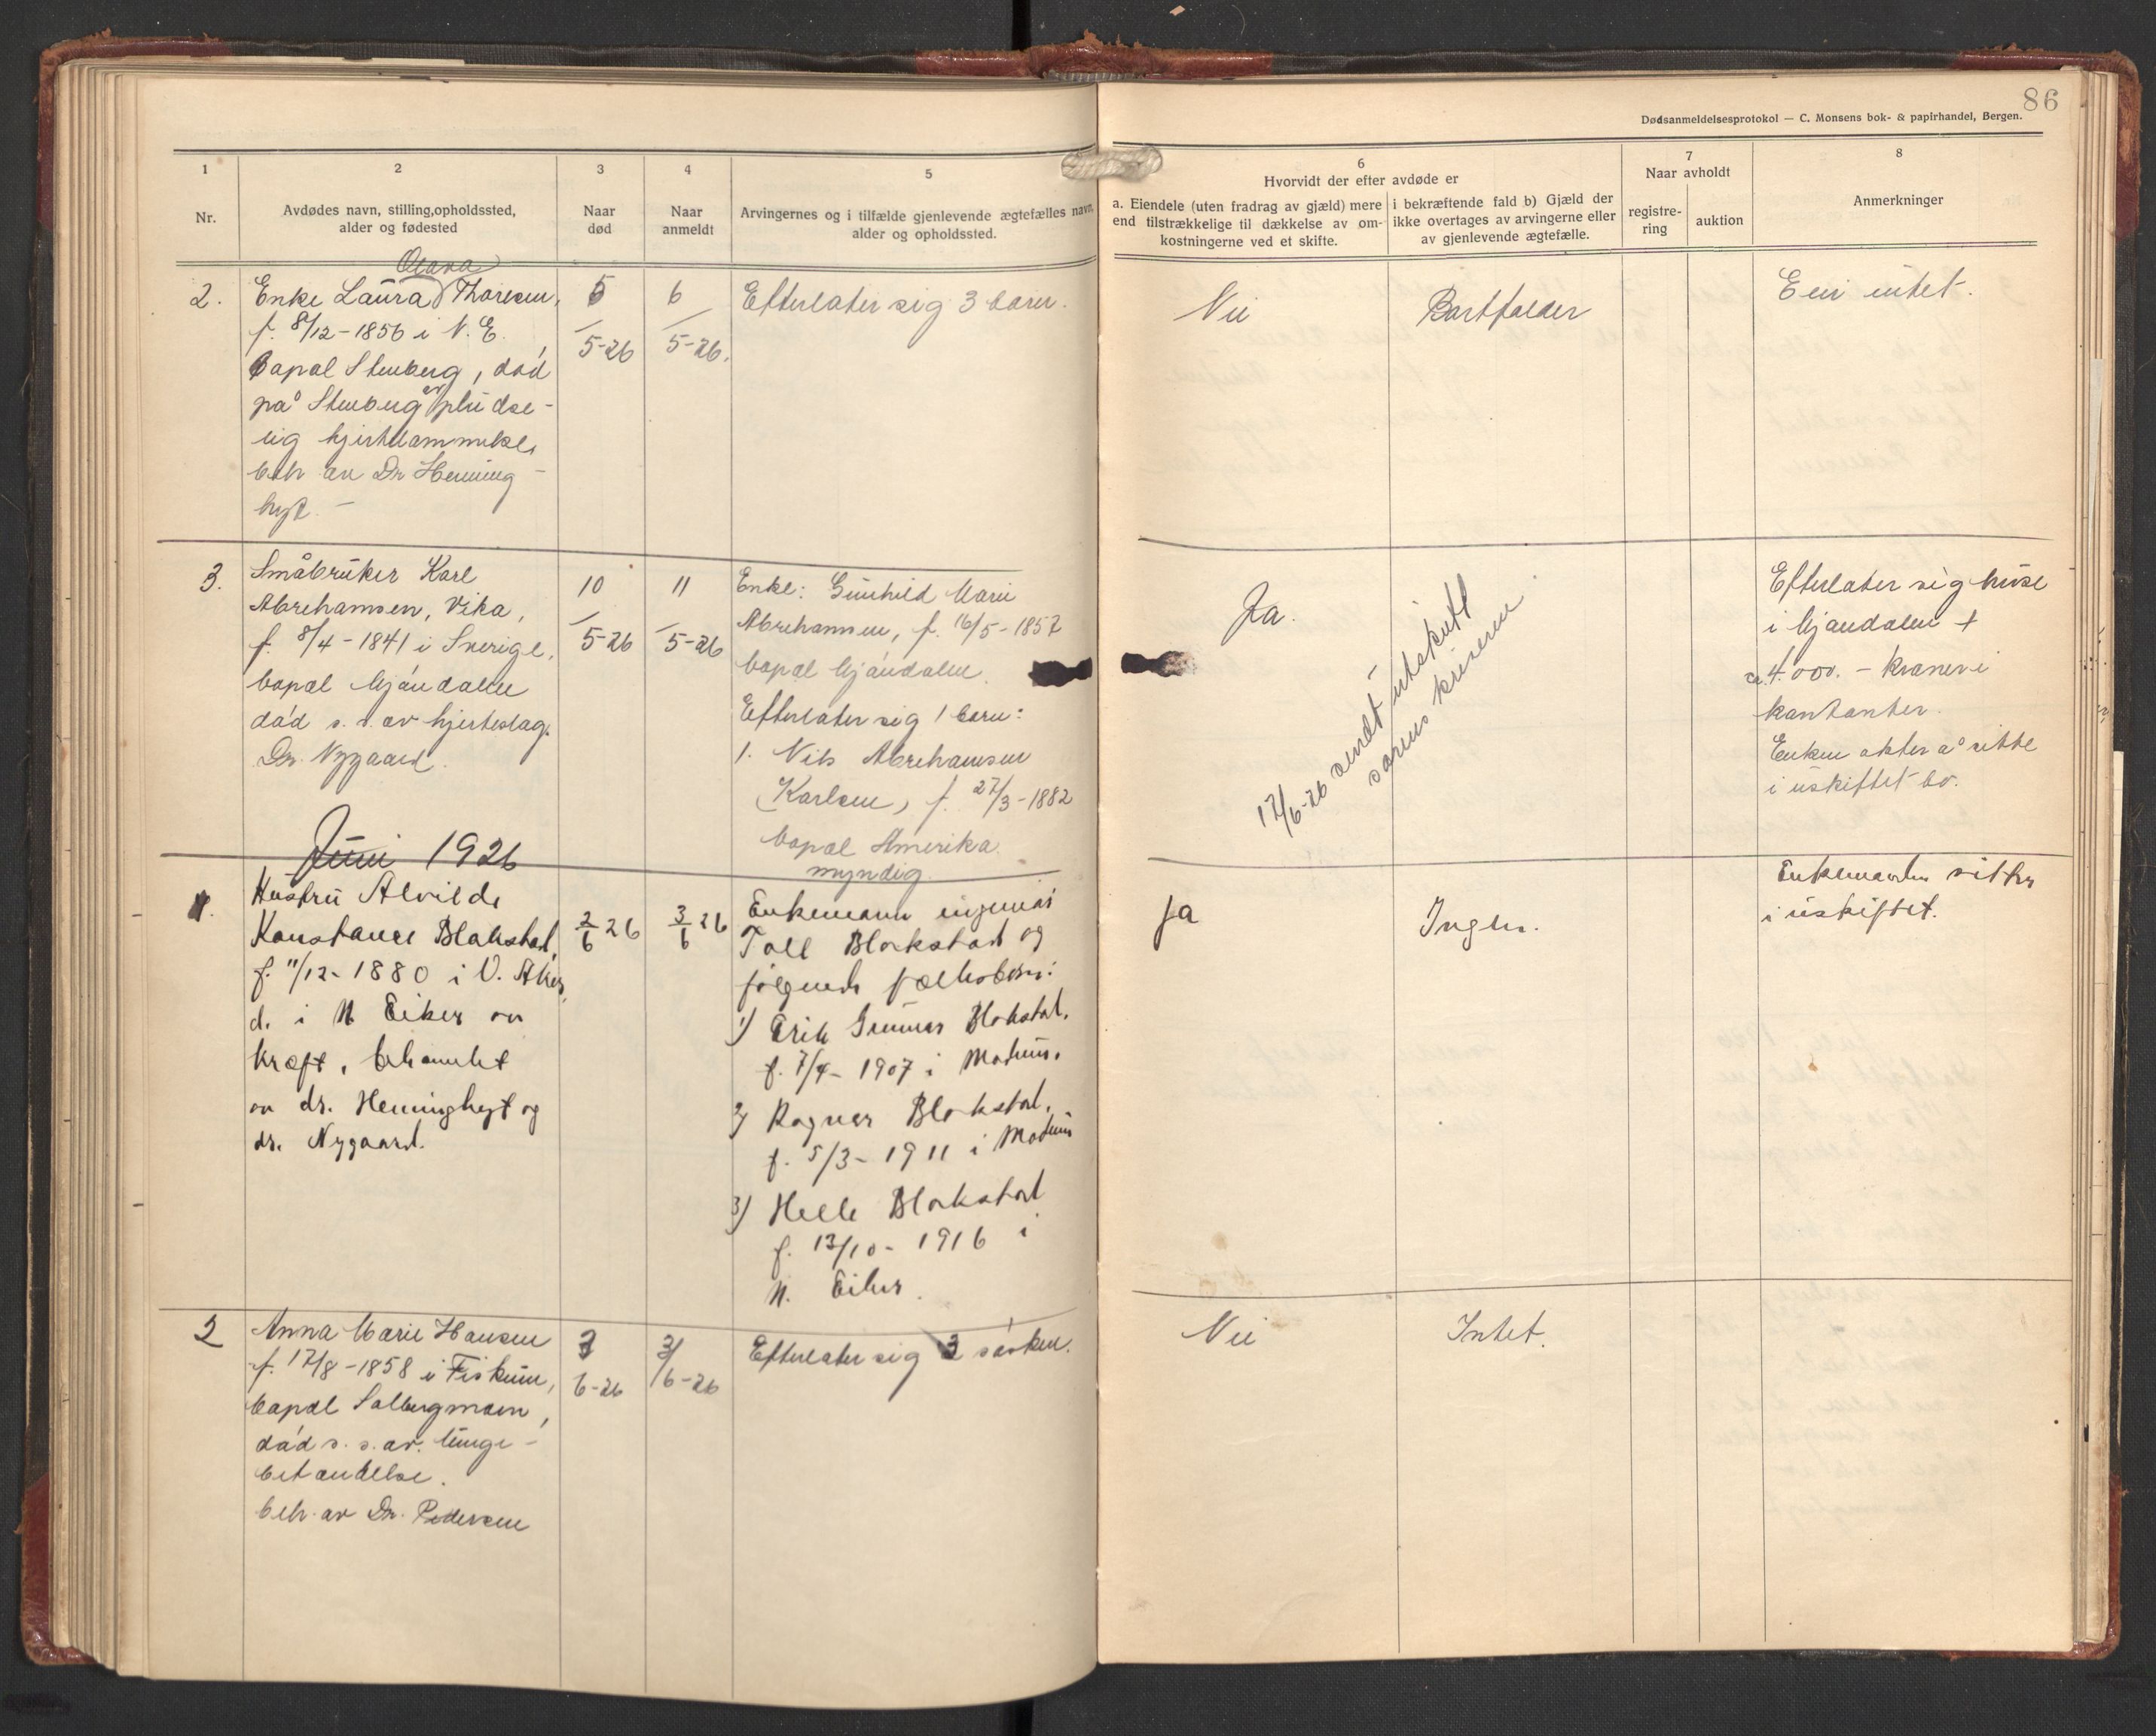 86
Dødsanmeldelsesprotokol — C. Monsens bok- & papirhandel, Bergen.
1
Nr.
2
Avdødes navn, stilling, opholdssted,
alder og fødested
3
Naar
død
4
Naar
anmeldt
5
Arvingernes og i tilfælde gjenlevende ægtefælles navn,
alder og opholdssted.
6
Hvorvidt der efter avdøde er
a. Eiendele (uten fradrag av gjæld) mere
end tilstrækkelige til dækkelse av om-
kostningerne ved et skifte.
i bekræftende fald b) Gjæld der
ikke overtages av arvingerne eller
av gjenlevende ægtefælle.
7
Naar avholdt
registre-
ring
auktion
8
Anmerkninger
2.
Olava
Enke Laura Thoresen,
f. 8/12-1856 i N. E.
bopæl Stenberg, død
på Stenberg av pludse-
lig hjertelammelse,
beh av Dr Henning-
hyt. -
5
/
5-26
6
/
5-26.
Efterlater sig 3 barn.
Nei
Bortfalder
Eier intet.
3.
Småbruker Karl
Abrehamsen, Vika,
f. 8/4-1841 i Sverige,
bopæl Mjøndalen
død s. s. av hjerteslag.
Dr. Nygaard.
10
/
5-26
11
/
5-26
Enke: Gunhild Marie
Abrehamsen, f. 16/5-1857
bopæl Mjøndalen.
Efterlater sig 1 barn:
1. Nils Abrehamsen
(Karlsen), f. 27/3-1882
bopæl Amerika
myndig.
Ja.
17/6-26 sendt utskrift
Efterlater sig huse
i Mjøndalen +
ca. 4.000. - kroner i
kontanter.
Enken akter å sitte
i uskiftet bo.
Juni 1926
1.
Hustru Alvilde
Konstance Blakstad,
f. 11/12-1880 i V. Aker,
d. i N Eiker av
kræft, behandlet
av dr. Henninghyt og
dr. Nygaard.
2/6 26
3/6 26
Enkemann ingeniør
Tall Blakstad og
følgende fællesbørn:
1) Erik Gunnar Blakstad.
f. 7/4-1907 i Modum.
2) Ragnar Blakstad.
f. 5/3-1911 i Modum
3) Helle Blakstad
f. 13/10-1916 i
N. Eiker.
Ja
Ingen.
Enkemanden sitter
i uskiftet.
2
Anna Marie Hansen
f. 17/8-1858 i Fiskum,
bopæl Solbergmoen,
død s. s. av. lunge-
betændelse.
beh. av Dr. Pedersen
6-26
3/
6-26
Efterlater sig 3 søsken.
Nei
Intet.